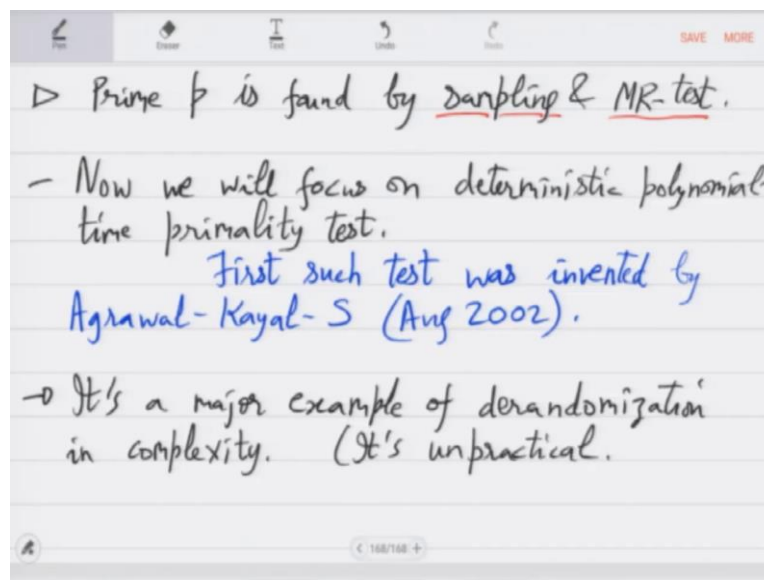 Pen Eraser Text Undo Redo SAVE MORE
▷ Prime p is found by sampling & MR-test.
– Now we will focus on deterministic polynomial-
time primality test.
First such test was invented by
Agrawal-Kayal-S (Aug 2002).
→ It's a major example of derandomization
in complexity. (It's unpractical.
168/168